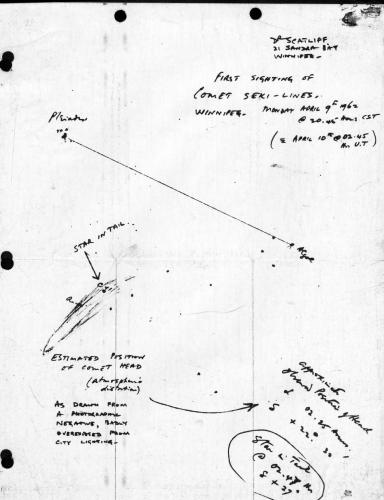 SCATLIFF
21 SANDRA BAY
WINNIPEG -
FIRST SIGHTING OF
COMET SEKI - LINES.
WINNIPEG. MONDAY APRIL 9th 1962
@ 20.45 HOURS CST
(= APRIL 10th @ 02.45
U.T)
Pleiades
STAR IN TAIL.
ESTIMATED POSITION
OF COMET HEAD
(atmospheric
distortion)
AS DRAWN FROM
A PHOTOGRAPHIC
NEGATIVE, BADLY
OVEREXPOSED FROM
CITY LIGHTING.
Approximate
Position of Head
02.25
+ 22° 30
Star in Tail
@ 02.48
S + 27°